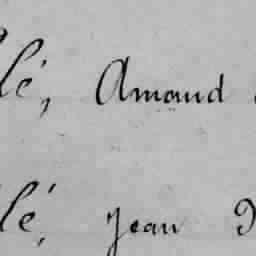 lé, Amand
lé, Jean